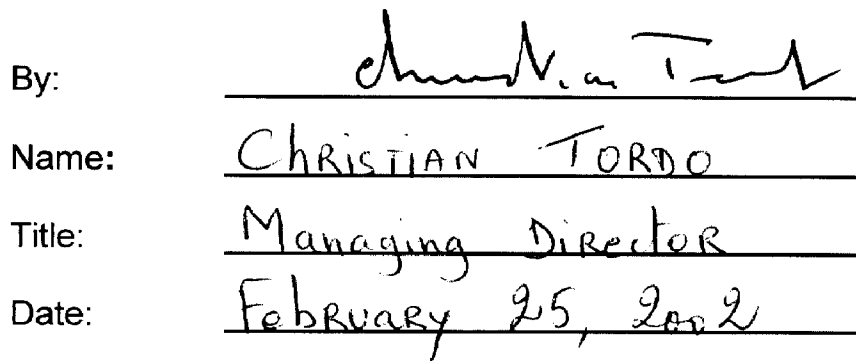 By:
Name: ChRiSTiAN TORDO
Title: Managing DiRectoR
Date: FebRuaRy 25, 2002